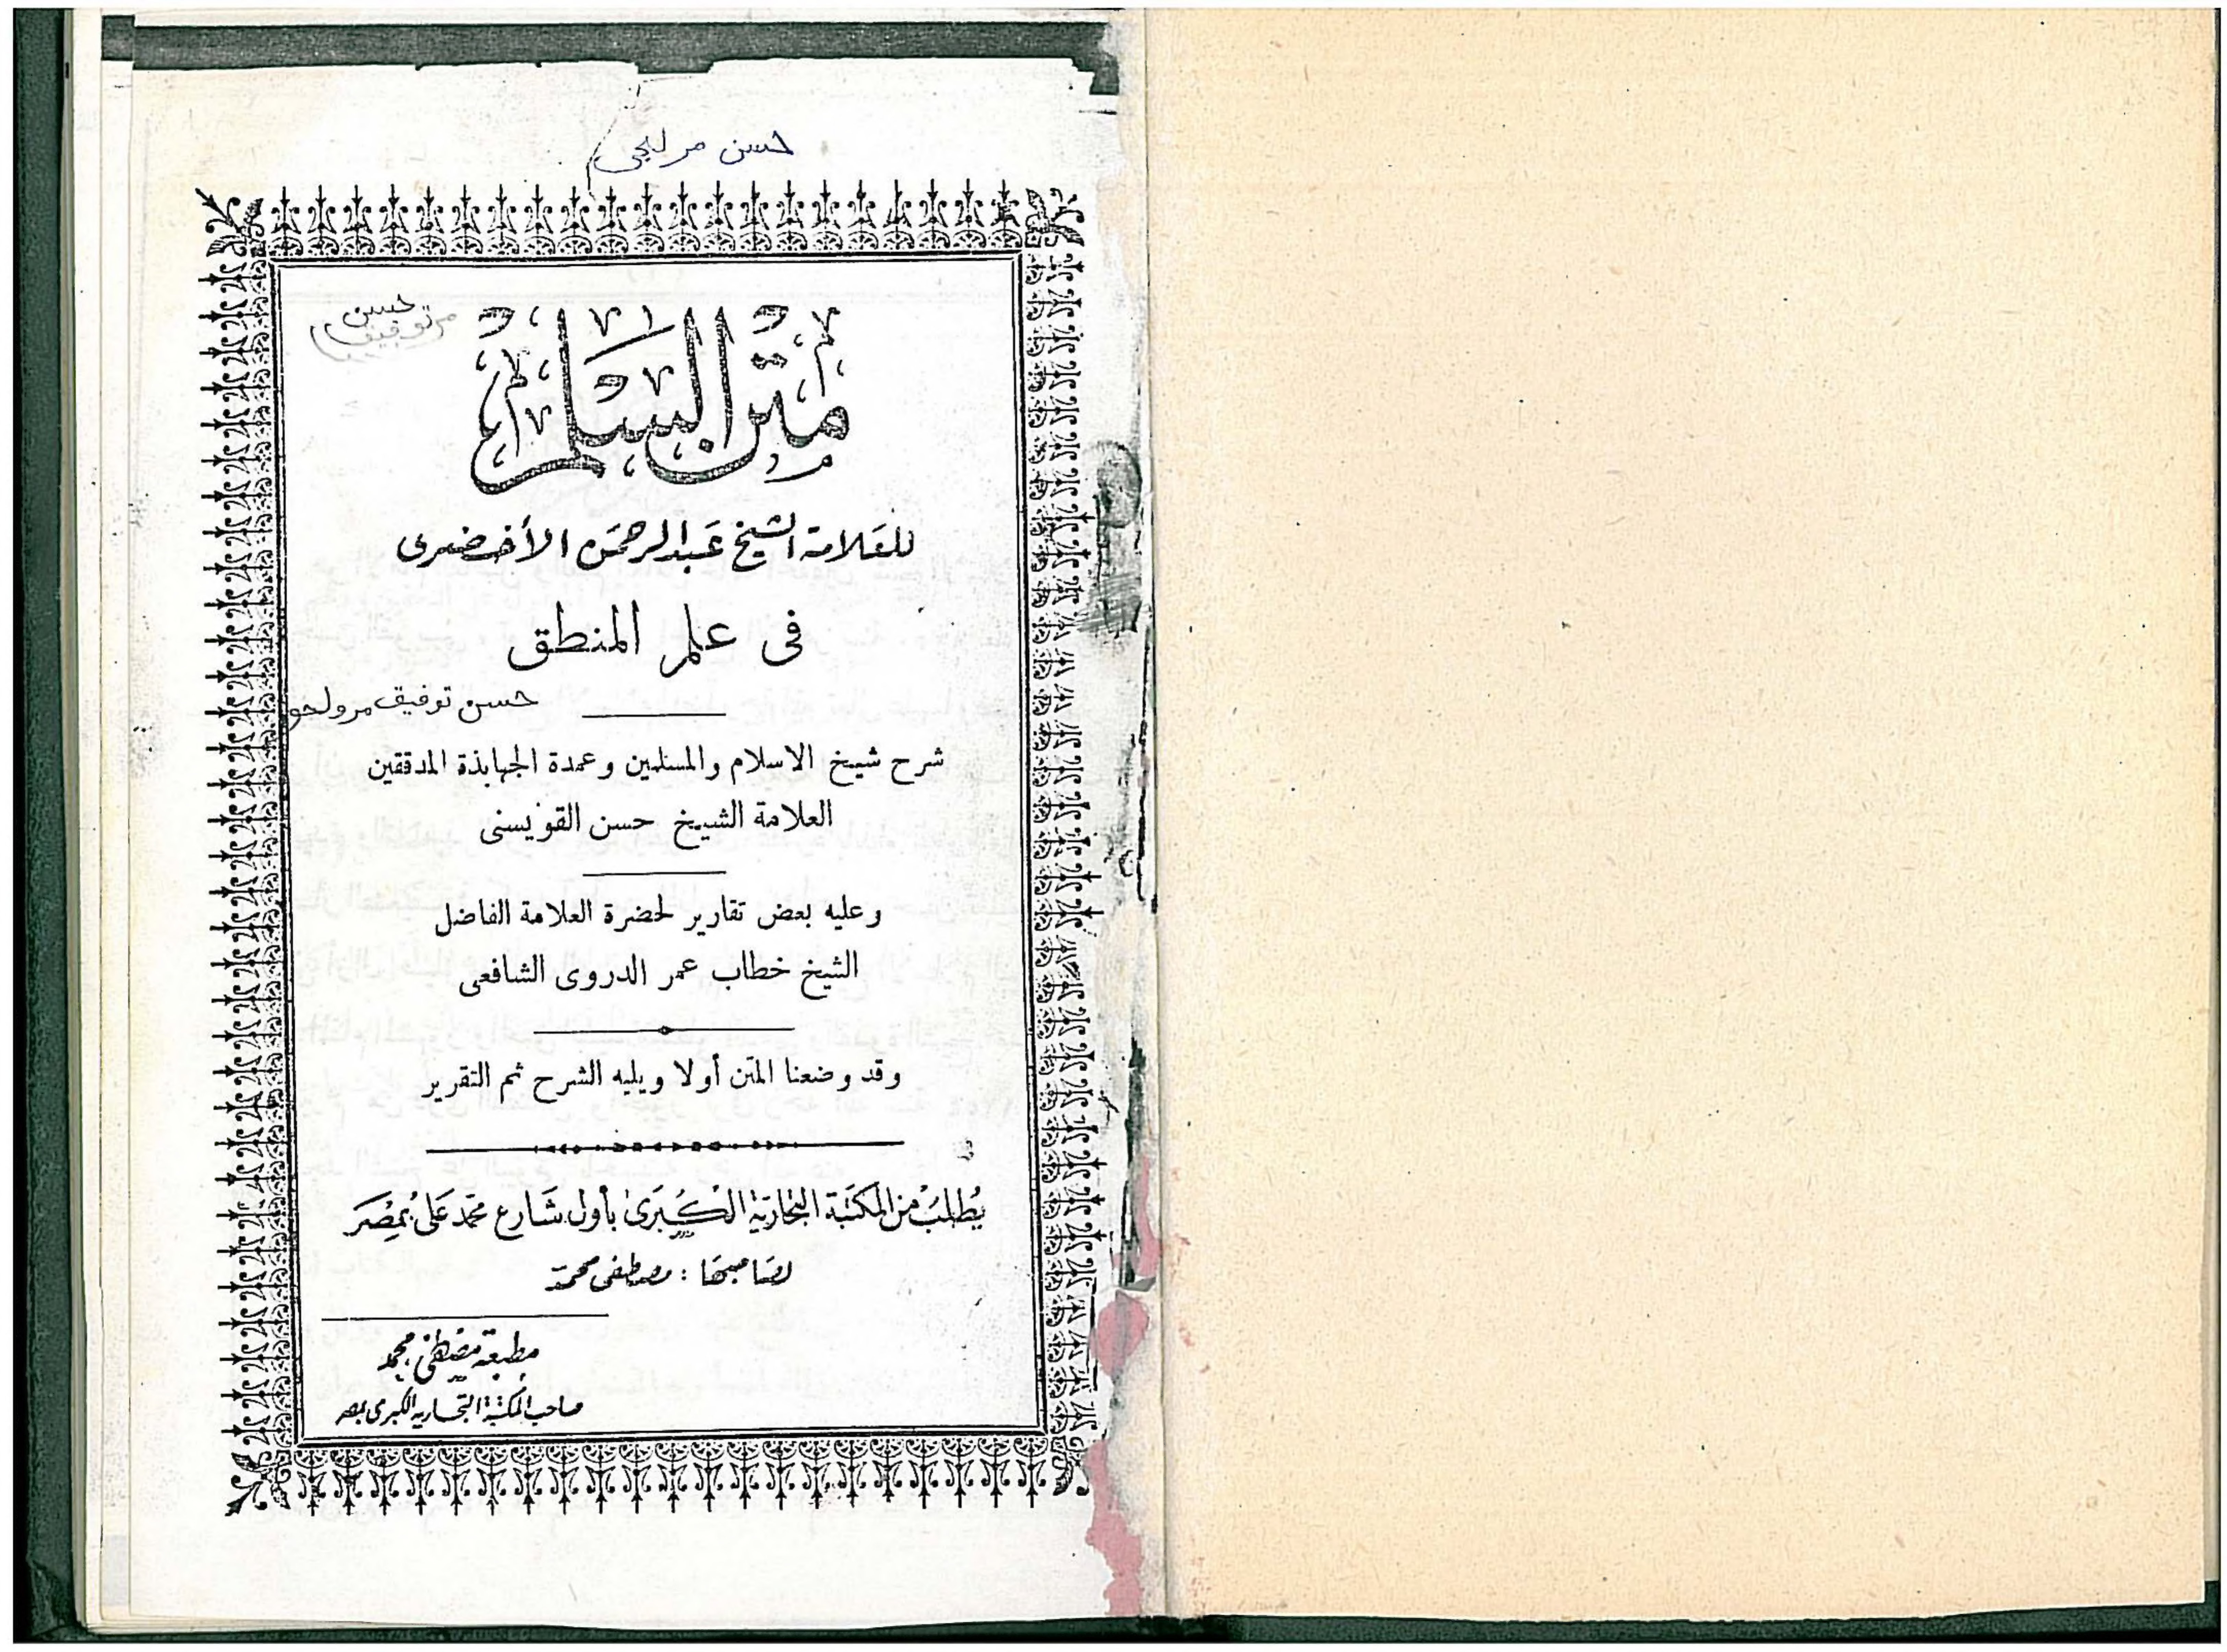 حسن
حسن
توفيق
متن السلم
للعلامة الشيخ عبد الرحمن الأخضرى
فى علم المنطق
حسن توفيق
شرح شيخ الاسلام والمسلمين وعمدة الجهابذة المدققين
العلامة الشيخ حسن القويسنى
وعليه بعض تقارير لحضرة العلامة الفاضل
الشيخ خطاب عمر الدروى الشافعى
وقد وضعنا المتن أولا ويليه الشرح ثم التقرير
يُطلبُ من المكتبة التجارية الكُبرى بأول شَارع محمّد عَلى بمِصْرَ
لصَاحبهَا : مصطفى محمد
مطبعة مصطفى محمد
صاحب المكتبة التجارية الكبرى بمصر